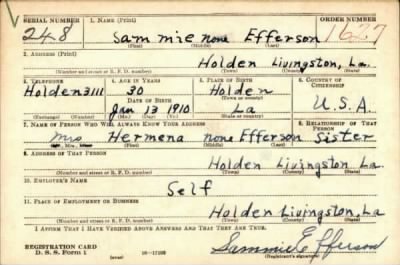 SERIAL NUMBER 1. NAME (Print) ORDER NUMBER
248 Sammie none Efferson 1627
(First) (Middle) (Last)
2. ADDRESS (Print)
Holden Livingston, La.
(Number and street or R. F. D. number) (Town) (County) (State)
3. TELEPHONE 4. AGE IN YEARS 5. PLACE OF BIRTH 6. COUNTRY OF CITIZENSHIP
Holden 3111 30 Holden
DATE OF BIRTH (Town or county)
Jan 13 1910 La U.S.A.
(Exchange) (Number) (Mo.) (Day) (Yr.) (State or country)
7. NAME OF PERSON WHO WILL ALWAYS KNOW YOUR ADDRESS 8. RELATIONSHIP OF THAT PERSON
Mrs Hermena none Efferson Sister
(Mr., Mrs., Miss) (First) (Middle) (Last)
9. ADDRESS OF THAT PERSON
Holden Livingston La
(Number and street or R. F. D. number) (Town) (County) (State)
10. EMPLOYER'S NAME
Self
11. PLACE OF EMPLOYMENT OR BUSINESS
Holden Livingston, La
(Number and street or R. F. D. number) (Town) (County) (State)
I AFFIRM THAT I HAVE VERIFIED ABOVE ANSWERS AND THAT THEY ARE TRUE.
REGISTRATION CARD
D. S. S. Form 1 (over) Sammie Efferson
(Registrant's signature)